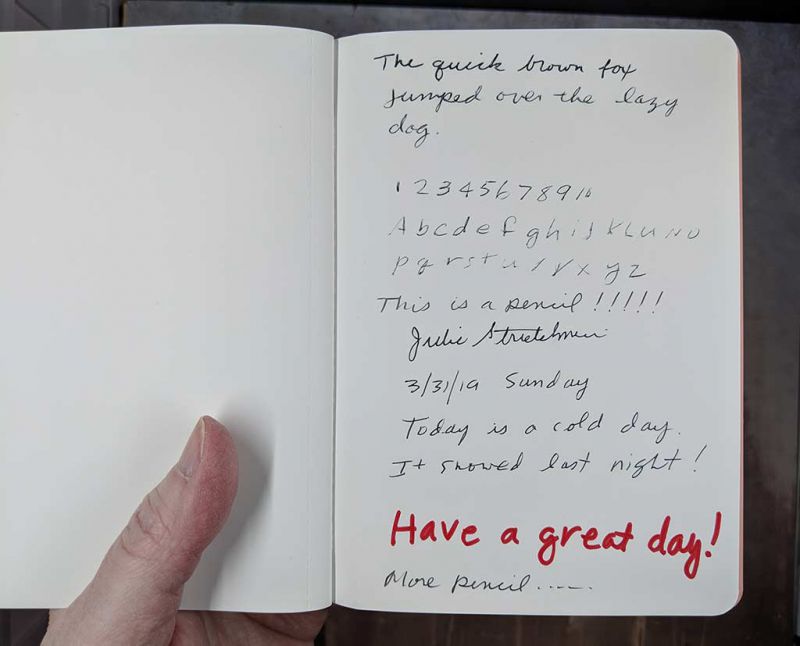 The quick brown fox
jumped over the lazy
dog.
1 2 3 4 5 6 7 8 9 10
A b c d e f g h i j k L M N O
p q r s t u v x y z
This is a pencil !!!!!
Julie
3/31/19 Sunday
Today is a cold day.
It snowed last night!
Have a great day!
More pencil ......